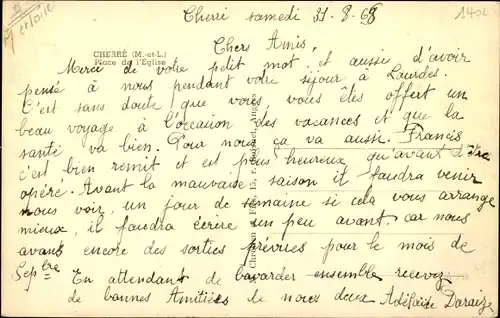 M et Loire
140e
Cherré samedi 31-8-68
CHERRÉ (M.-et-L.)
Place de l'Église
Chers Amis,
Merci de votre petit mot et aussi d'avoir
pensé à nous pendant votre séjour à Lourdes.
C'est sans doute que vous, vous êtes offert un
beau voyage à l'occasion des vacances et que la
santé va bien. Pour nous ça va aussi. Francis
c'est bien remit et est plus heureux qu'avant d'être
opéré. Avant la mauvaise saison il faudra venir
nous voir, un jour de semaine si cela vous arrange
mieux, il faudra écrire un peu avant. car nous
avons encore des sorties prévues pour le mois de
Septbre
En attendant de bavarder ensemble recevez
de bonnes Amitiés de nous deux Adélaïde Daraize